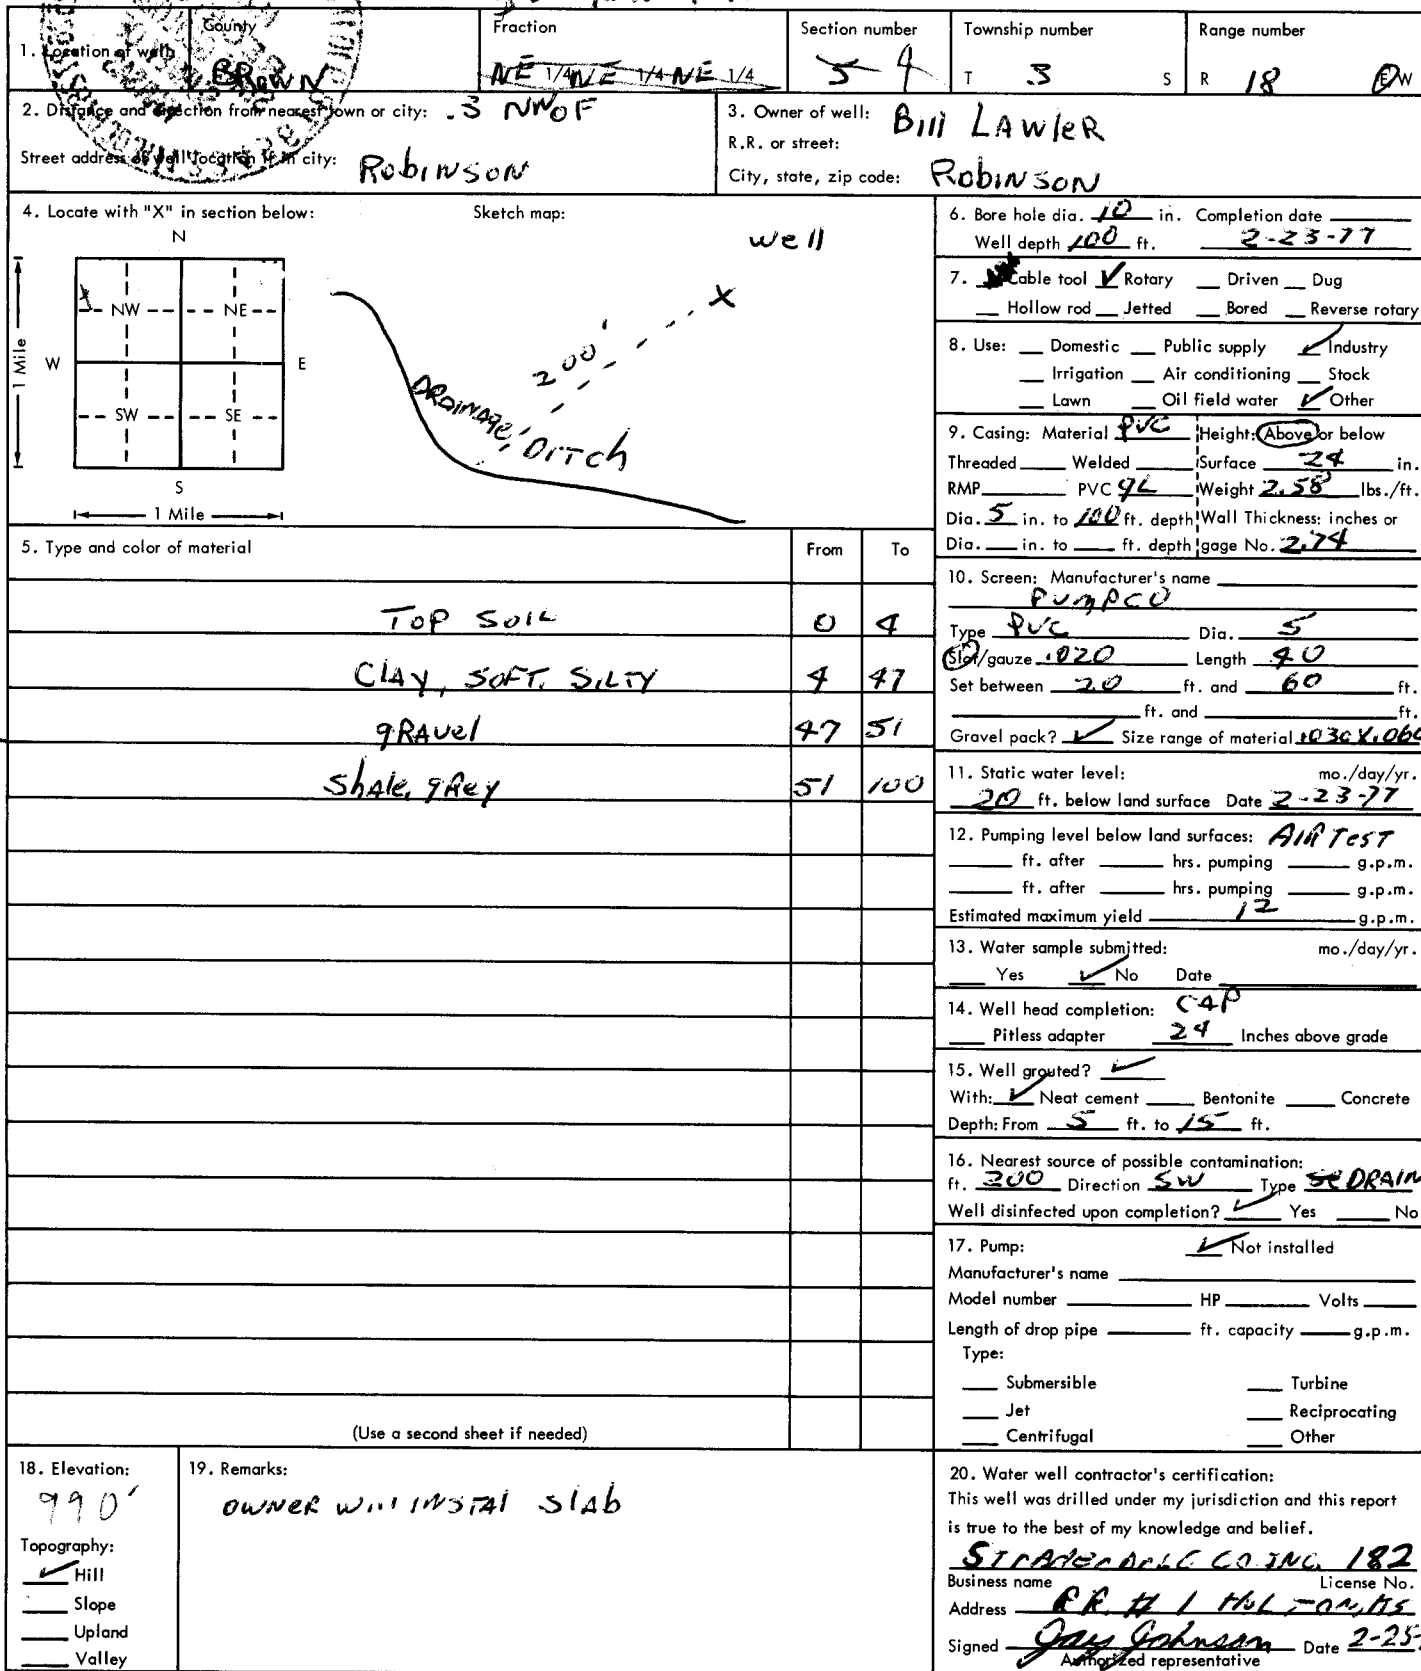 County Fraction Section number Township number Range number
1. Location of well: BROWN NE 1/4 NE 1/4 NE 1/4 4 T 3 S R 18 E W
2. Distance and direction from nearest town or city: .3 NW OF
Street address of well location if in city: Robinson
3. Owner of well: Bill LAWleR
R.R. or street:
City, state, zip code: Robinson
4. Locate with "X" in section below: Sketch map:
N
NW NE
W E
SW SE
S
1 Mile
1 Mile
well
X
200'
DRainage, Ditch
5. Type and color of material From To
Top Soil 0 4
Clay, Soft, Silty 4 47
gravel 47 51
Shale, grey 51 100
(Use a second sheet if needed)
6. Bore hole dia. 10 in. Completion date
Well depth 100 ft. 2-23-77
7. Cable tool ✓ Rotary Driven Dug
Hollow rod Jetted Bored Reverse rotary
8. Use: Domestic Public supply ✓ Industry
Irrigation Air conditioning Stock
Lawn Oil field water ✓ Other
9. Casing: Material PVC Height: Above or below
Threaded Welded Surface 24 in.
RMP PVC GL Weight 2.58 lbs./ft.
Dia. 5 in. to 100 ft. depth Wall Thickness: inches or
Dia. in. to ft. depth gage No. 2.74
10. Screen: Manufacturer's name
PUMPCO
Type PVC Dia. 5
Slot/gauze .020 Length 40
Set between 20 ft. and 60 ft.
ft. and ft.
Gravel pack? ✓ Size range of material .030X.060
11. Static water level: mo./day/yr.
20 ft. below land surface Date 2-23-77
12. Pumping level below land surfaces: AIR TEST
ft. after hrs. pumping g.p.m.
ft. after hrs. pumping g.p.m.
Estimated maximum yield 12 g.p.m.
13. Water sample submitted: mo./day/yr.
Yes ✓ No Date
14. Well head completion: CAP
Pitless adapter 24 Inches above grade
15. Well grouted? ✓
With: ✓ Neat cement Bentonite Concrete
Depth: From 5 ft. to 15 ft.
16. Nearest source of possible contamination:
ft. 200 Direction SW Type DRAIN
Well disinfected upon completion? ✓ Yes No
17. Pump: ✓ Not installed
Manufacturer's name
Model number HP Volts
Length of drop pipe ft. capacity g.p.m.
Type:
Submersible Turbine
Jet Reciprocating
Centrifugal Other
18. Elevation:
990'
Topography:
✓ Hill
Slope
Upland
Valley
19. Remarks:
OWNER Will INSTAl SlAb
20. Water well contractor's certification:
This well was drilled under my jurisdiction and this report
is true to the best of my knowledge and belief.
CO. INC. 182
Business name License No.
Address RR # 1 HOLTON, KS
Signed Jay Johnson Date 2-25-
Authorized representative